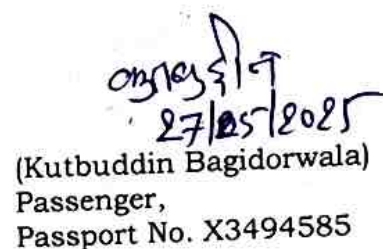 27/05/2025
(Kutbuddin Bagidorwala)
Passenger,
Passport No. X3494585